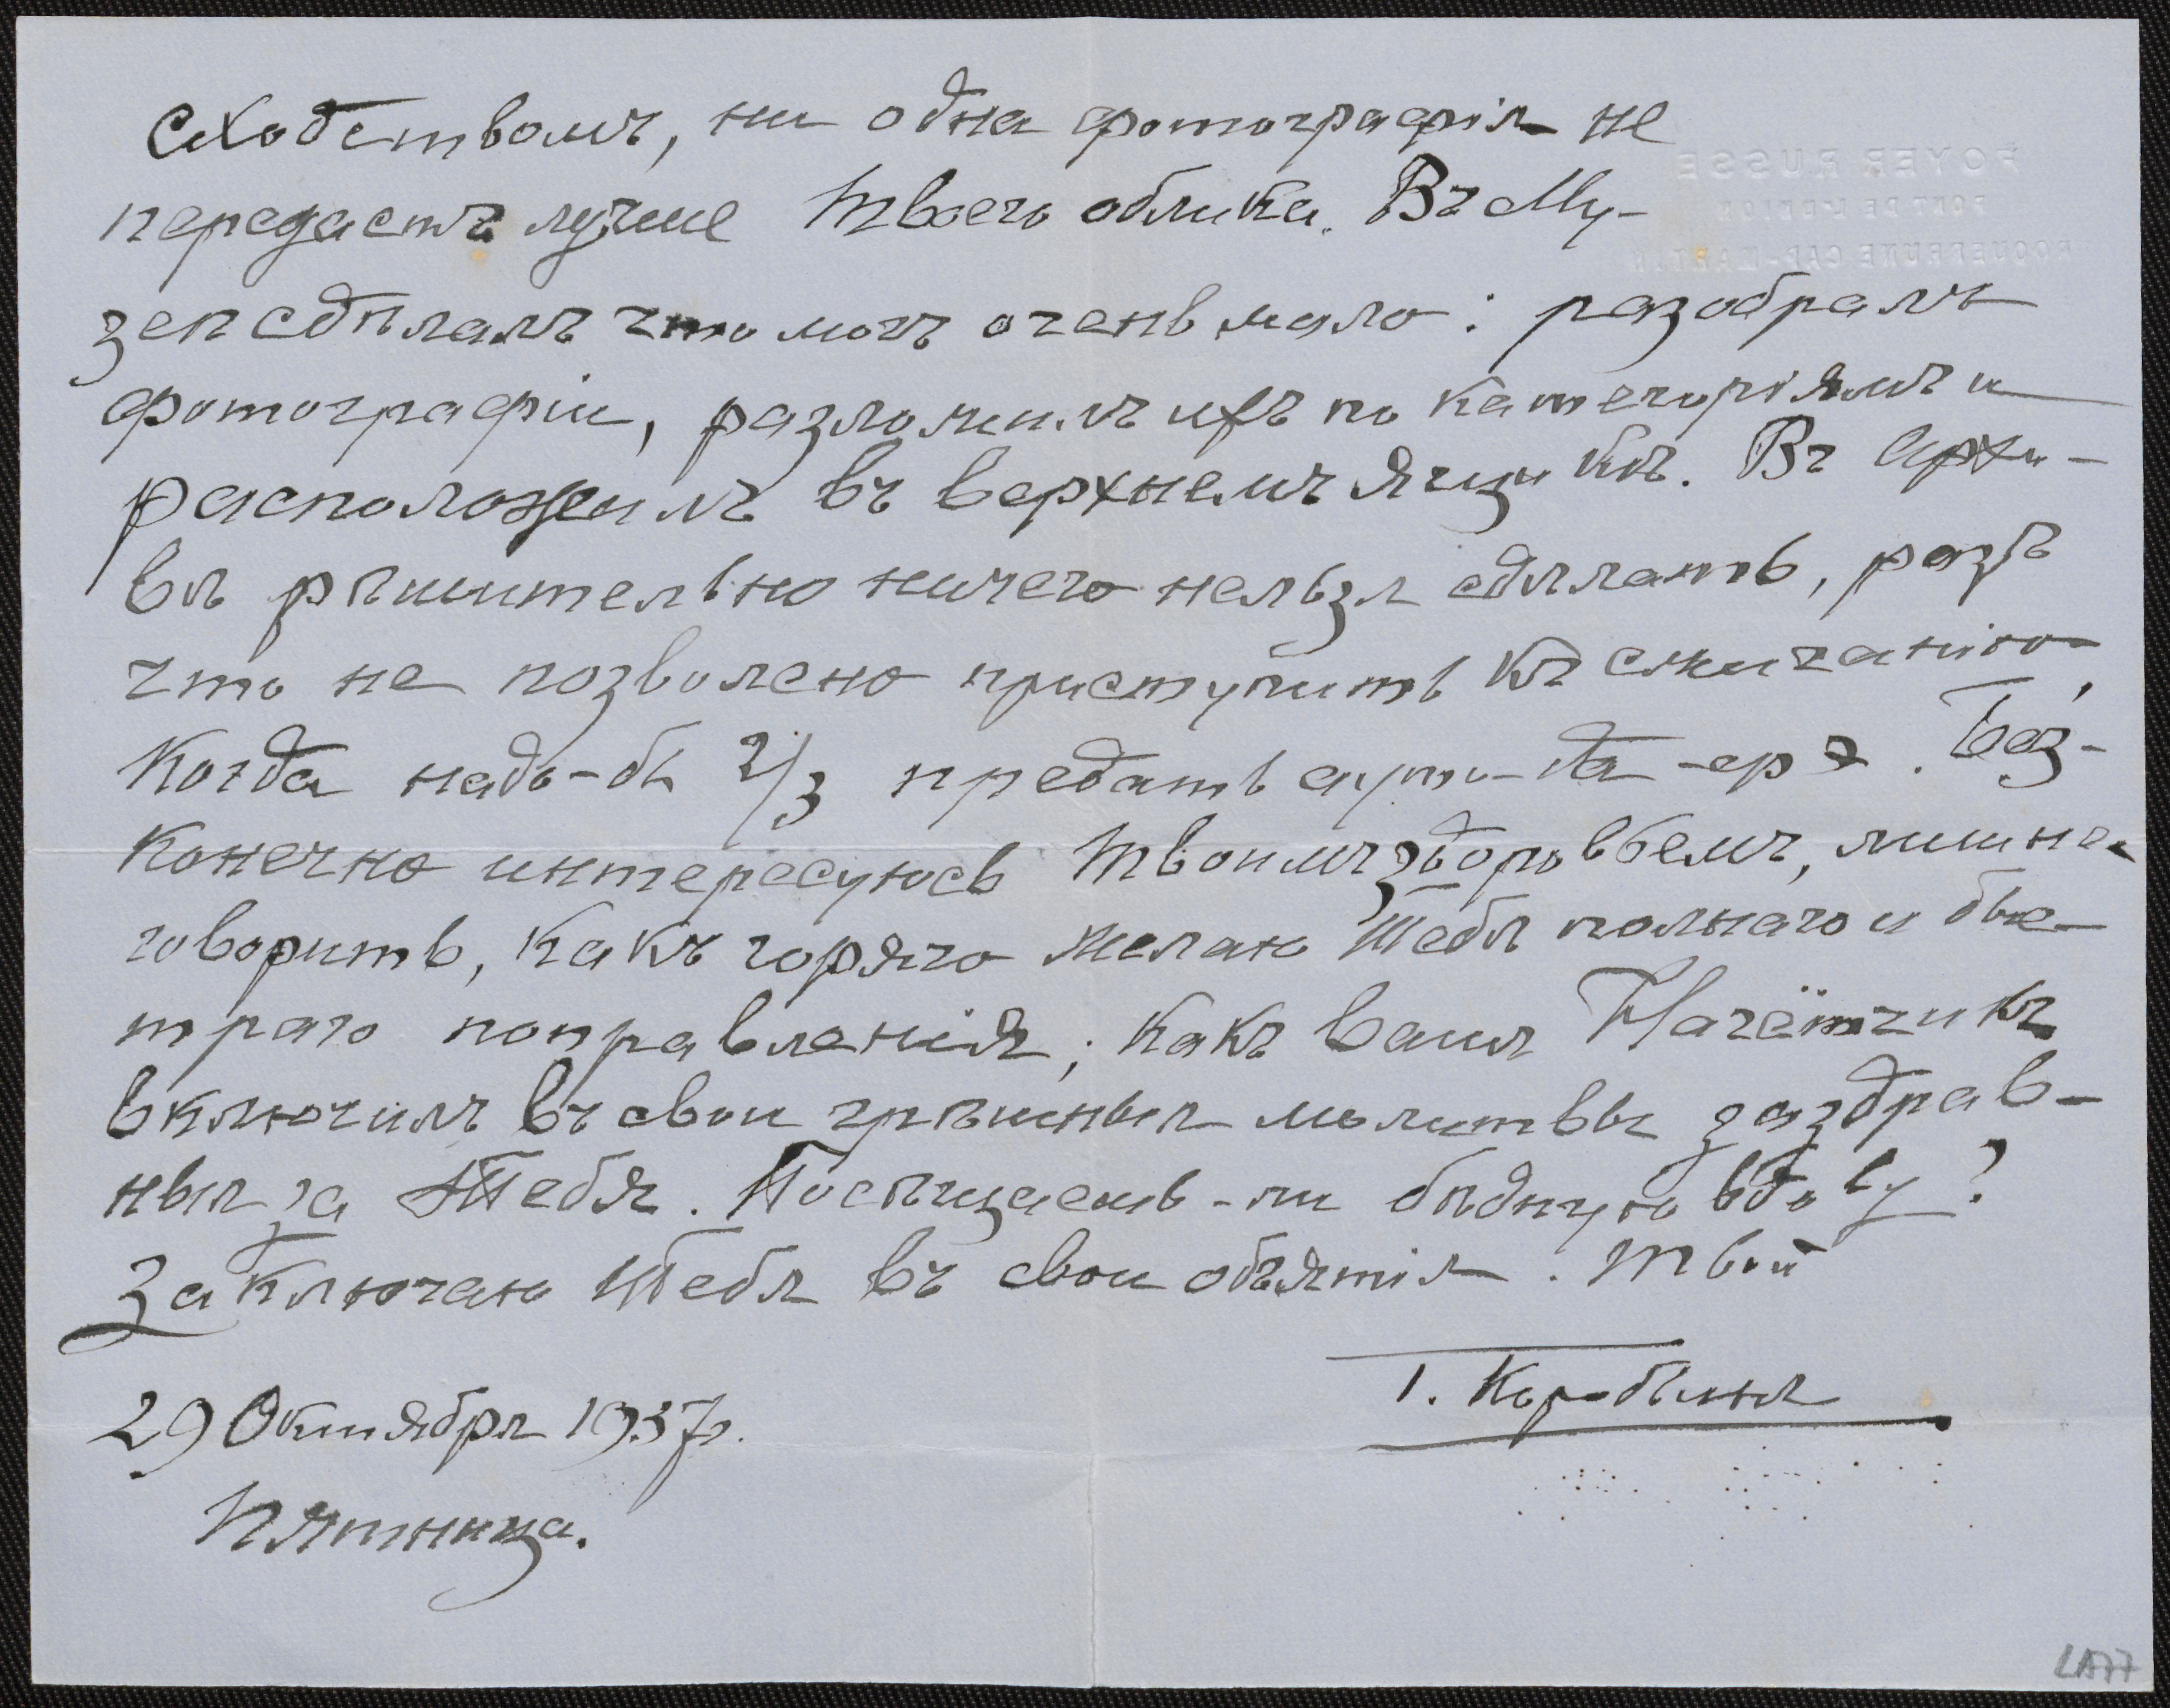 сходствомъ, ни одна фотографія не
передастъ лучше Твоего облика. Въ Му-
зеѣ сдѣлалъ что могъ очень мало: разобралъ
фотографіи, разложилъ ихъ по категоріямъ и
расположилъ въ верхнемъ ящикѣ. Въ Архи-
вѣ рѣшительно ничего нельзя сдѣлать, разъ
что не позволено приступить къ сжиганію,
когда надо-бъ 2/3 предать ауто-да-фэ. Без-
конечно интересуюсь Твоимъ здоровьемъ, лишне
говорить, какъ горячо желаю Тебѣ полнаго и бы-
траго поправленія; какъ Вашъ Начётчикъ
включилъ въ свои грѣшныя молитвы заздрав-
ныя за Тебя. Посѣщаешь-ли бѣдную вдову?
Заключаю Тебя въ свои объятія. Твой
29 Октября 1937г.
Пятница.
FOYER RUSSE
PONT DE L'UNION
ROQUEBRUNE CAP-MARTIN
LA77